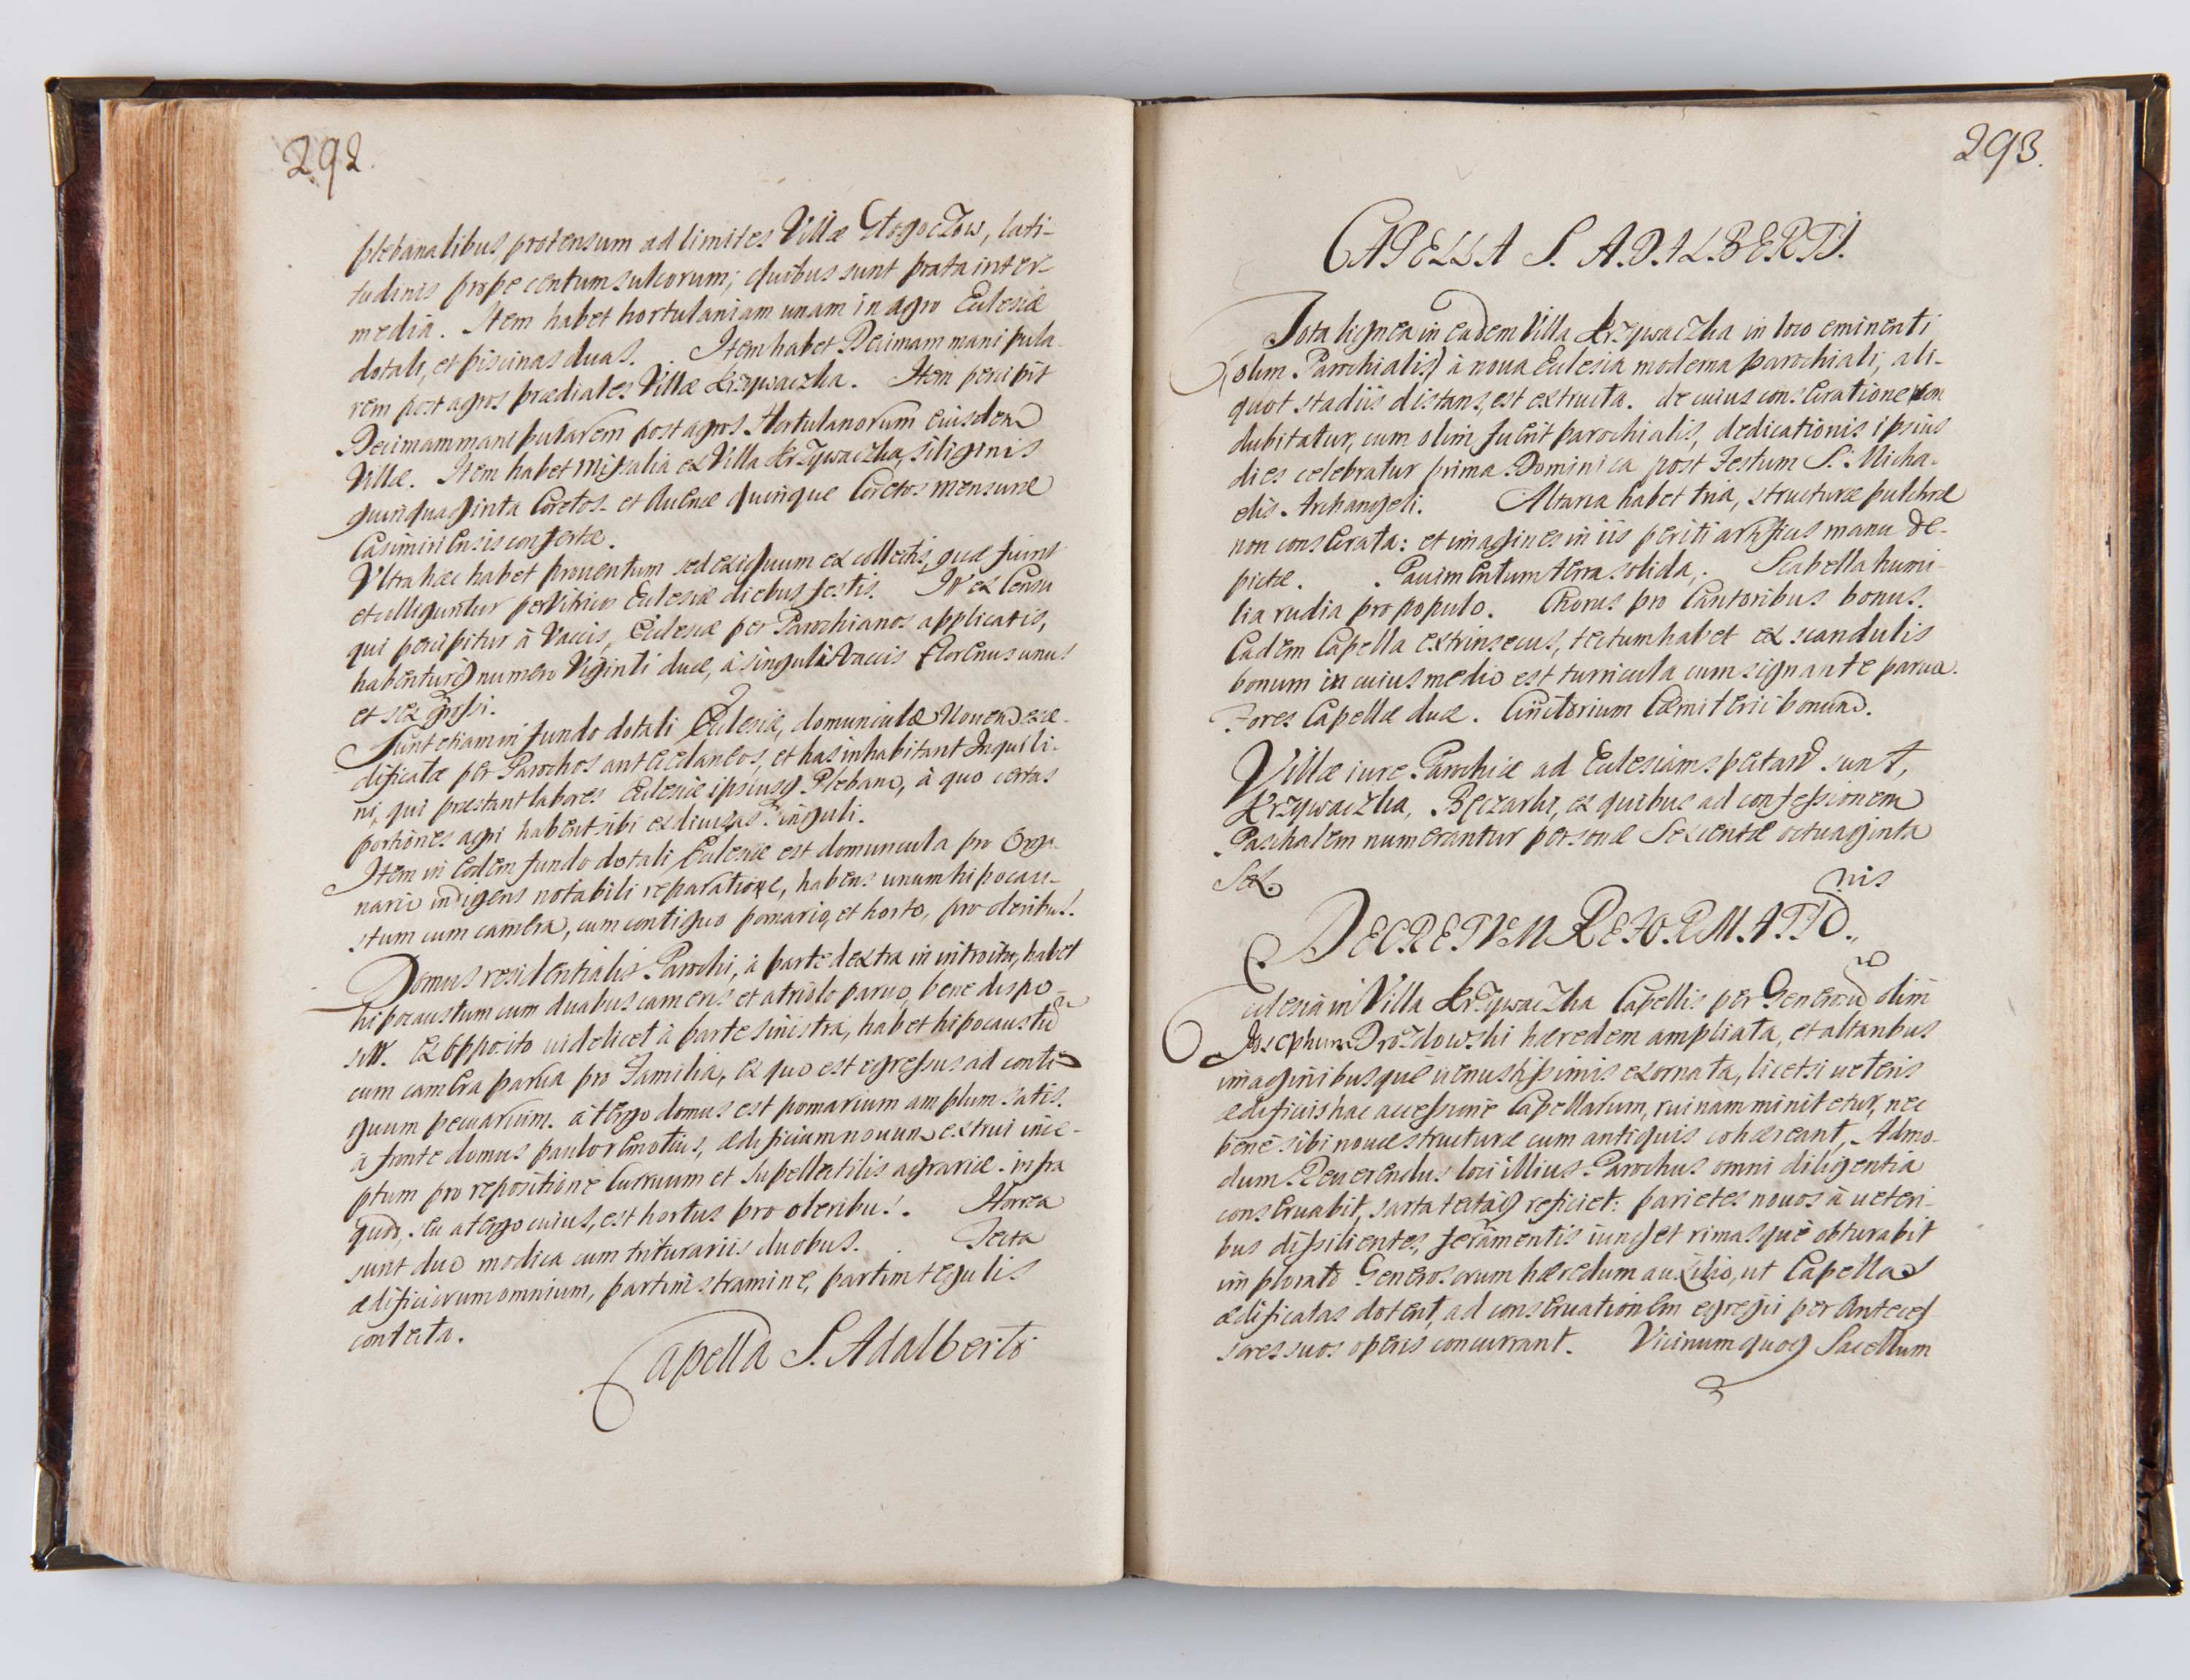 292.
plebanalibus, protensum ad limites Villæ Głogoczow, lati-
tudinis prope centum sulcorum; quibus sunt prata inter-
media. Item habet hortulaniam unam in agro Ecclesiæ
dotali, et piscinas duas. Item habet Decimam manipula-
rem post agros prædiales Villæ Krzywaczka. Item percipit
Decimam manipularem post agros Hortulanorum eiusdem
Villæ. Item habet Missalia ex Villa Krzywaczka, siliginis
quinquaginta Coretos, et Auenæ quinque Coretos mensuræ
Casimiriensis confertæ.
Vltra hæc habet prouentum sed exiguum ex collectis, quæ fiunt
et colliguntur per Vitricos Ecclesiæ diebus festis. It' ex Censu
qui percipitur à Vaccis, Ecclesiæ per Parochianos applicatis,
habenturq numero Viginti duæ, à singulis Vaccis florenus unus
et sex grossi.
Sunt etiam in fundo dotali Ecclesiæ, domunculæ Nouem exæ-
dificatæ per Parochos antecedaneos, et has inhabitant Inquili-
ni, qui præstant labores Ecclesiæ ipsiusq Plebano, à quo certas
portiones agri habent sibi ex diuisas singuli.
Item in eodem fundo dotali Ecclesiæ est domuncula pro Orga-
nario indigens notabili reparatione, habens unum hipocau-
stum cum camera, cum contiguo pomario, et horto, pro oleribus.
Domus residentialis Parochi, à parte dextra in introitu, habet
hipocaustum cum duabus cameris et atriolo paruo, bene dispo-
sitū. Ex opposito uidelicet à parte sinistra, habet hipocaustū
cum camera parua pro Familia, ex quo est egressus ad conti-
guum pecuarium. à tergo domus est pomarium amplum satis.
à fronte domus paulo remotius, ædificium nouum extrui ince-
ptum pro repositione curruum et supellectilis agrariæ. infra
quod, seu a tergo cuius, est hortus pro oleribus. Horrea
sunt duo modica cum triturariis duobus. Tecta
ædificiorum omnium, partim stramine, partim tegulis
contecta.
Capella S. Adalberti
293.
CAPELLA S. ADALBERTI.
Tota lignea in eadem Villa Krzywaczka in loco eminenti
(olim Parochialis) à noua Ecclesia moderna parochiali, ali-
quot stadiis distans, est extructa. de cuius consecratione non
dubitatur, cum olim fuerit parochialis, dedicationis ipsius
dies celebratur prima Dominica post Festum S. Micha-
elis Archangeli. Altaria habet tria, structuræ pulchræ
non consecrata: et imagines in iis periti artificus manu de-
pictæ. Pauimentum terra solida. Scabella humi-
lia rudia pro populo. Chorus pro Cantoribus bonus.
Eadem Capella extrinsecus, tectum habet ex scandulis
bonum in cuius medio est turricula cum signante parua.
Fores Capellæ duæ. Cinctorium Cæmiterii bonum.
Villæ iure Parochiæ ad Ecclesiam spectan̄ sunt,
Krzywaczka, Bęczarka, ex quibus ad confessionem
Paschalem numerantur personæ Sexcentæ octuaginta
Sex.
DECRETVM REFORMATIO-
nis
Ecclesia in Villa Krzywaczka Capellis per Generosū olim
Josephum Drozdowski hæredem ampliata, et altaribus
imaginibusque uenustissimis exornata, licet si ueteris
ædificiis hac accessione Capellarum, ruinam minitetur, nec
bene sibi nouæ structuræ cum antiquis cohæreant, Admo-
dum Reuerendus loci illius Parochus omni diligentia
conseruabit, sarta tectaq reficiet: parietes nouos à ueteri-
bus dissilientes, ferramentis iunget rimasque obturabit
implorato Generosorum hæredum auxilio, ut Capellas
ædificatas dotent, ad conseruationem egregii per Anteces
sores suos operis concurrant. Vicinum quoq Sacellum